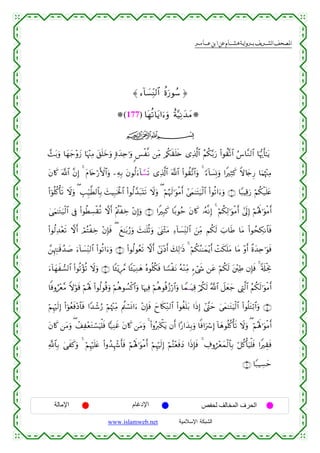 المصحف الشـريف بـرواية هشـام عن ابن عـامـر
﴿ سُورَةُ ٱلنِّسَآءِ ﴾
*مَدَنِيَّةٌ وَءَايَاتُهَا (177)*
﷽
يَٰٓأَيُّهَا ٱلنَّاسُ ٱتَّقُوا۟ رَبَّكُمُ ٱلَّذِى خَلَقَكُم مِّن نَّفْسٍ وَٰحِدَةٍ وَخَلَقَ مِنْهَا زَوْجَهَا وَبَثَّ
مِنْهُمَا رِجَالًا كَثِيرًا وَنِسَآءً ۚ وَٱتَّقُوا۟ ٱللَّهَ ٱلَّذِى تَسَّآءَلُونَ بِهِۦ وَٱلْأَرْحَامَ ۚ إِنَّ ٱللَّهَ كَانَ
عَلَيْكُمْ رَقِيبًا ۝ وَءَاتُوا۟ ٱلْيَتَٰمَىٰٓ أَمْوَٰلَهُمْ ۖ وَلَا تَتَبَدَّلُوا۟ ٱلْخَبِيثَ بِٱلطَّيِّبِ ۖ وَلَا تَأْكُلُوٓا۟
أَمْوَٰلَهُمْ إِلَىٰٓ أَمْوَٰلِكُمْ ۚ إِنَّهُۥ كَانَ حُوبًا كَبِيرًا ۝ وَإِنْ خِفْتُمْ أَلَّا تُقْسِطُوا۟ فِى ٱلْيَتَٰمَىٰ
فَٱنكِحُوا۟ مَا طَابَ لَكُم مِّنَ ٱلنِّسَآءِ مَثْنَىٰ وَثُلَٰثَ وَرُبَٰعَ ۖ فَإِنْ خِفْتُمْ أَلَّا تَعْدِلُوا۟
فَوَٰحِدَةً أَوْ مَا مَلَكَتْ أَيْمَٰنُكُمْ ۚ ذَٰلِكَ أَدْنَىٰٓ أَلَّا تَعُولُوا۟ ۝ وَءَاتُوا۟ ٱلنِّسَآءَ صَدُقَٰتِهِنَّ
نِحْلَةً ۚ فَإِن طِبْنَ لَكُمْ عَن شَىْءٍ مِّنْهُ نَفْسًا فَكُلُوهُ هَنِيٓـًٔا مَّرِيٓـًٔا ۝ وَلَا تُؤْتُوا۟ ٱلسُّفَهَآءَ
أَمْوَٰلَكُمُ ٱلَّتِى جَعَلَ ٱللَّهُ لَكُمْ قِيَمًا وَٱرْزُقُوهُمْ فِيهَا وَٱكْسُوهُمْ وَقُولُوا۟ لَهُمْ قَوْلًا مَّعْرُوفًا
۝ وَٱبْتَلُوا۟ ٱلْيَتَٰمَىٰ حَتَّىٰٓ إِذَا بَلَغُوا۟ ٱلنِّكَاحَ فَإِنْ ءَانَسْتُم مِّنْهُمْ رُشْدًا فَٱدْفَعُوٓا۟ إِلَيْهِمْ
أَمْوَٰلَهُمْ ۖ وَلَا تَأْكُلُوهَآ إِسْرَافًا وَبِدَارًا أَن يَكْبَرُوا۟ ۚ وَمَن كَانَ غَنِيًّا فَلْيَسْتَعْفِفْ ۖ وَمَن كَانَ
فَقِيرًا فَلْيَأْكُلْ بِٱلْمَعْرُوفِ ۚ فَإِذَا دَفَعْتُمْ إِلَيْهِمْ أَمْوَٰلَهُمْ فَأَشْهِدُوا۟ عَلَيْهِمْ ۚ وَكَفَىٰ بِٱللَّهِ
حَسِيبًا ۝
الحرف المخالف لحفص الإدغام الإمالة
الشبكة الإسلامية www.islamweb.net